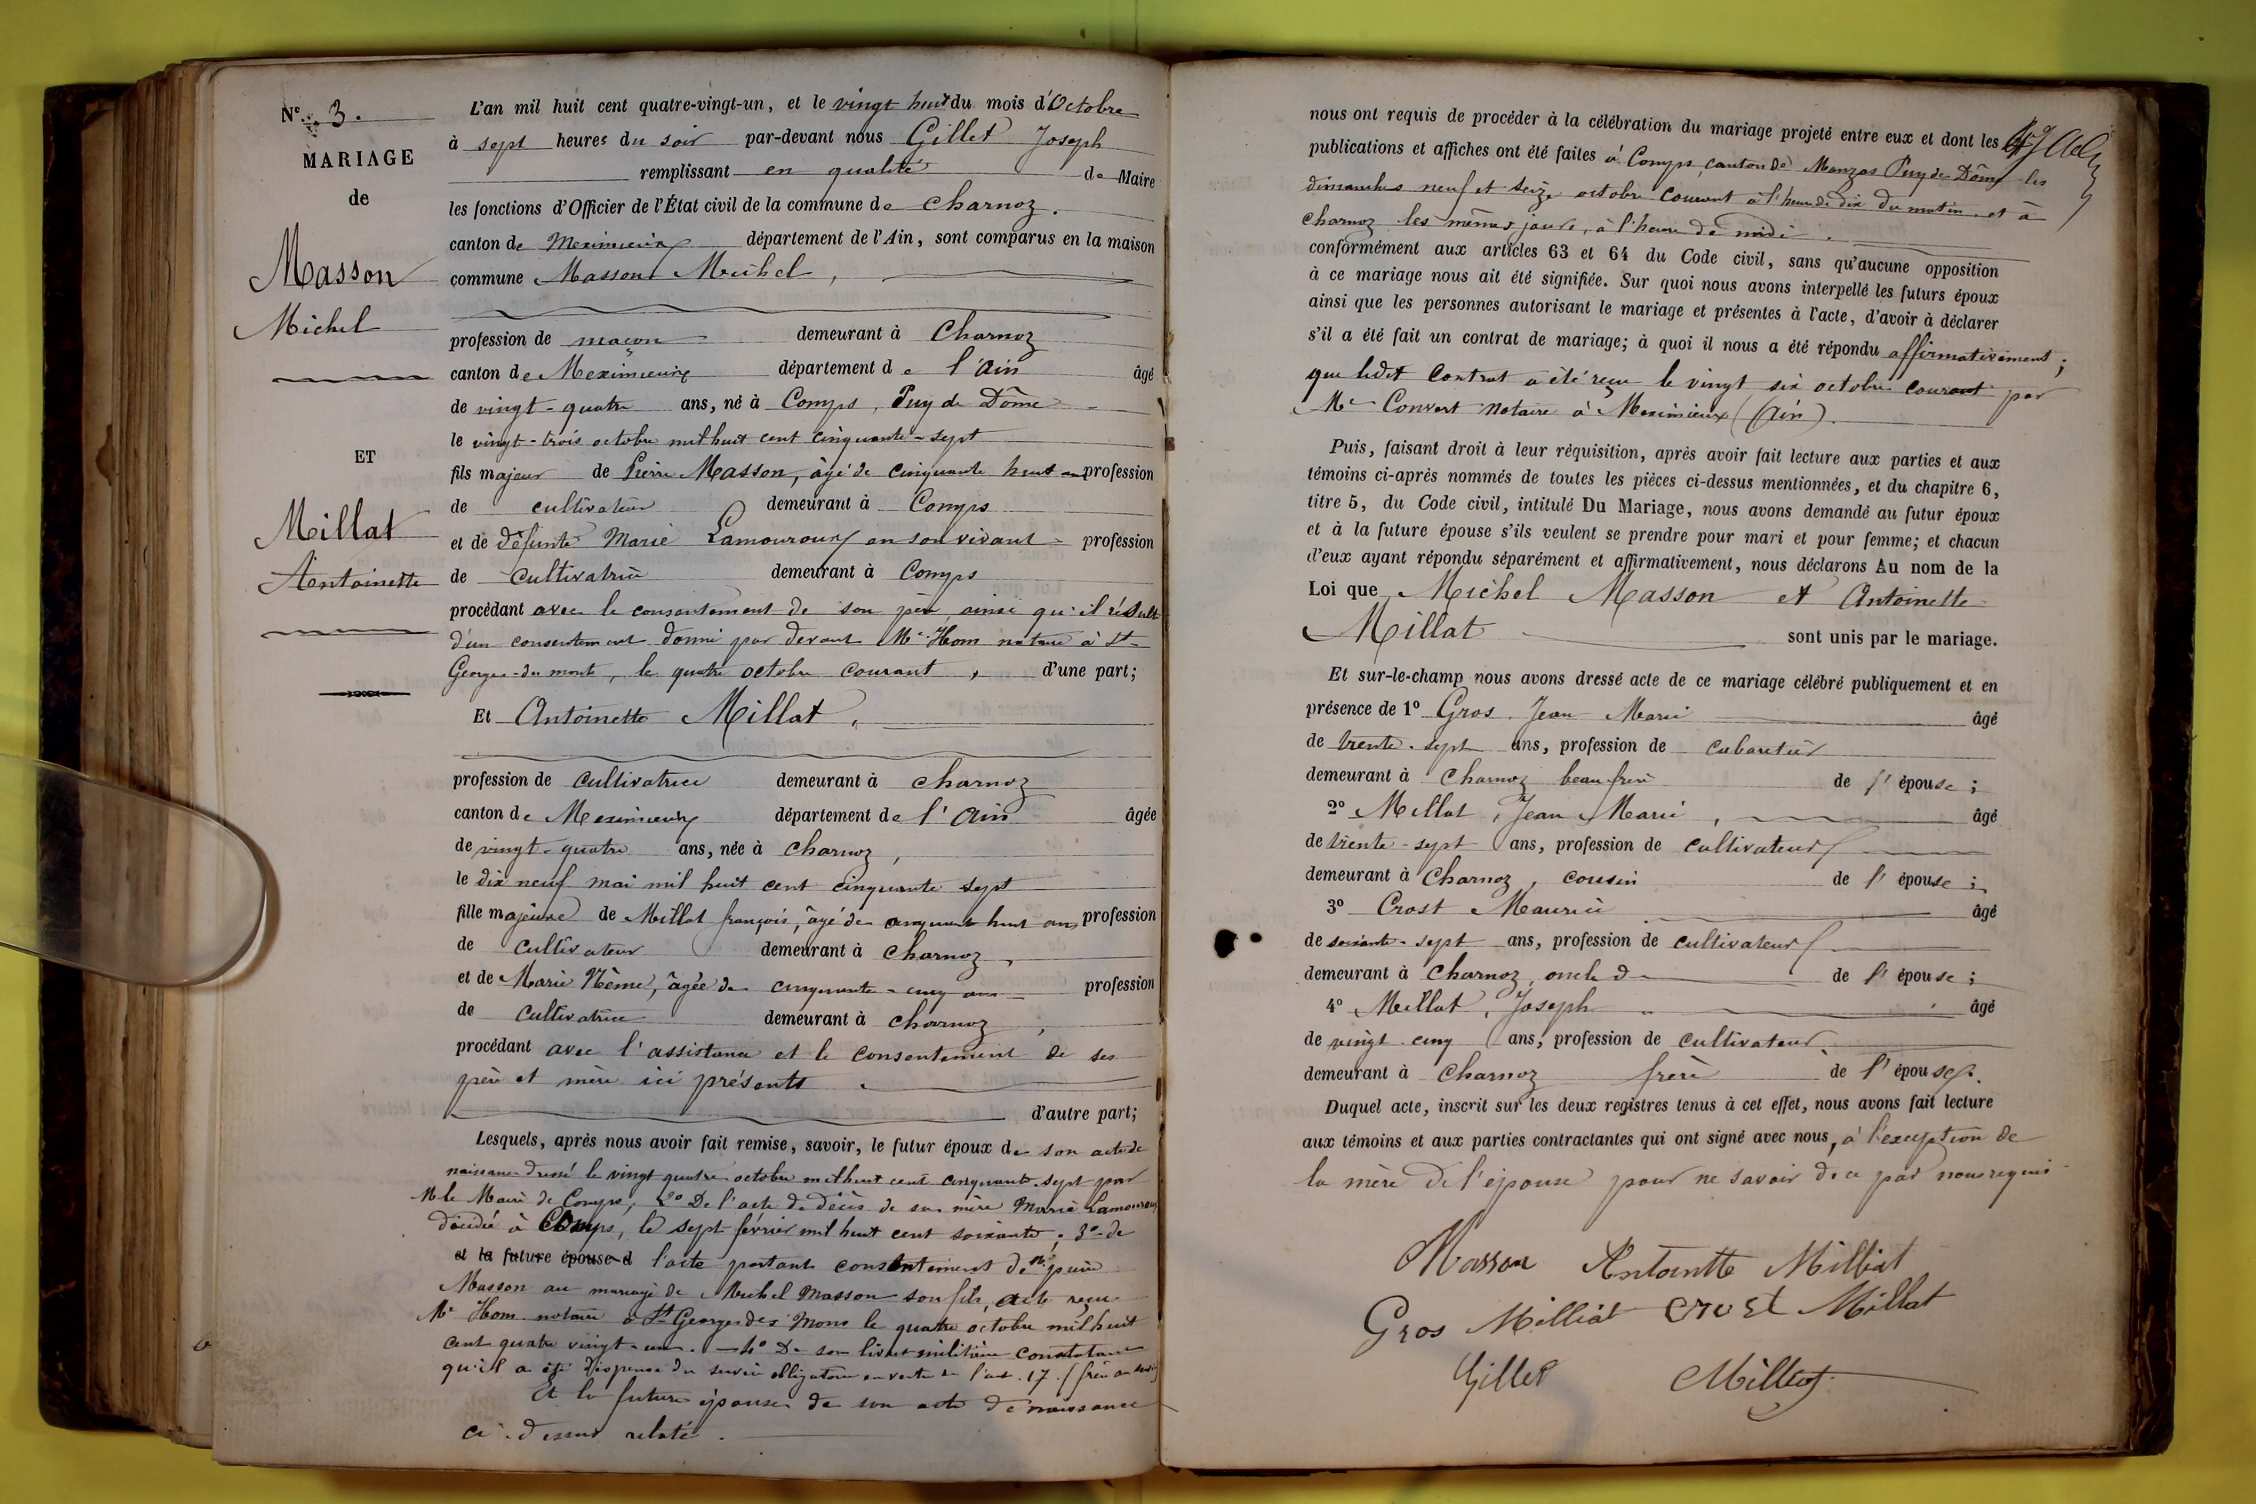 N° 3.
MARIAGE
de
Masson
Michel
ET
Millat
Antoinette
L'an mil huit cent quatre-vingt-un, et le vingt huit du mois d'Octobre
à sept heures du soir par-devant nous Gillet Joseph
remplissant en qualité de Maire
les fonctions d'Officier de l'État civil de la commune de Charnoz.
canton de Meximieux département de l'Ain, sont comparus en la maison
commune Masson Michel,
profession de maçon demeurant à Charnoz
canton de Meximieux département de l'Ain âgé
de vingt-quatre ans, né à Comps, Puy de Dôme
le vingt-trois octobre mil huit cent cinquante-sept
fils majeur de Pierre Masson, âgé de cinquante huit ans profession
de cultivateur demeurant à Comps
et de défunte Marie Lamouroux en son vivant profession
de Cultivatrice demeurant à Comps
procédant avec le consentement de son père, ainsi qu'il résulte
d'un consentement donné par devant Me Hom notaire à St
Georges-du mont, le quatre octobre courant, d'une part;
Et Antoinette Millat,
profession de Cultivatrice demeurant à Charnoz
canton de Meximieux département de l'Ain âgée
de vingt-quatre ans, née à Charnoz,
le dix neuf mai mil huit cent cinquante sept
fille majeure de Millat françois, âgé de cinquante huit ans profession
de Cultivateur demeurant à Charnoz,
et de Marie Même, âgée de cinquante-cinq ans profession
de Cultivatrice demeurant à Charnoz,
procédant avec l'assistance et le consentement de ses
père et mère ici présents.
d'autre part;
Lesquels, après nous avoir fait remise, savoir, le futur époux de son acte de
naissance dressé le vingt quatre octobre mil huit cent cinquante-sept par
M le Maire de Comps, 2° De l'acte de décès de sa mère Marie Lamouroux
décédée à Comps, le sept février mil huit cent soixante; 3° de
et la future épouse d l'acte portant consentement de Mr pierre
Masson au mariage de Michel Masson son fils, acte reçu
Me Hom notaire à St Georges des Mons le quatre octobre mil huit
cent quatre vingt-un. - 4° De son livret militaire constatant
qu'il a été dispensé du service obligatoire en vertu de l'art. 17. (frère au service)
Et la future épouse de son acte de naissance
ci-dessus relaté.
nous ont requis de procéder à la célébration du mariage projeté entre eux et dont les
publications et affiches ont été faites à Comps, canton de Manzas Puy de Dôme les
dimanches neuf et seize octobre courant à l'heure de dix du matin et à
Charnoz les mêmes jours, à l'heure de midi.
conformément aux articles 63 et 64 du Code civil, sans qu'aucune opposition
à ce mariage nous ait été signifiée. Sur quoi nous avons interpellé les futurs époux
ainsi que les personnes autorisant le mariage et présentes à l'acte, d'avoir à déclarer
s'il a été fait un contrat de mariage; à quoi il nous a été répondu affirmativement;
que ledit Contrat a été reçu le vingt six octobre courant par
Me Convert notaire à Meximieux (Ain).
Puis, faisant droit à leur réquisition, après avoir fait lecture aux parties et aux
témoins ci-après nommés de toutes les pièces ci-dessus mentionnées, et du chapitre 6,
titre 5, du Code civil, intitulé Du Mariage, nous avons demandé au futur époux
et à la future épouse s'ils veulent se prendre pour mari et pour femme; et chacun
d'eux ayant répondu séparément et affirmativement, nous déclarons Au nom de la
Loi que Michel Masson et Antoinette
Millat sont unis par le mariage.
Et sur-le-champ nous avons dressé acte de ce mariage célébré publiquement et en
présence de 1° Gros Jean Marie âgé
de trente-sept ans, profession de cabaretier
demeurant à Charnoz beau frère de l'épouse;
2° Millat, Jean Marie, âgé
de trente-sept ans, profession de cultivateur
demeurant à Charnoz, cousin de l'épouse;
3° Crost Maurice âgé
de soixante-sept ans, profession de cultivateur
demeurant à Charnoz, oncle de de l'épouse;
4° Millat, Joseph âgé
de vingt-cinq ans, profession de cultivateur
demeurant à Charnoz frère de l'épouse.
Duquel acte, inscrit sur les deux registres tenus à cet effet, nous avons fait lecture
aux témoins et aux parties contractantes qui ont signé avec nous, à l'exception de
la mère de l'épouse pour ne savoir de ce par nous requis
Masson Antoinette Milliat
Gros Milliat Crost Millat
Gillet Milliat